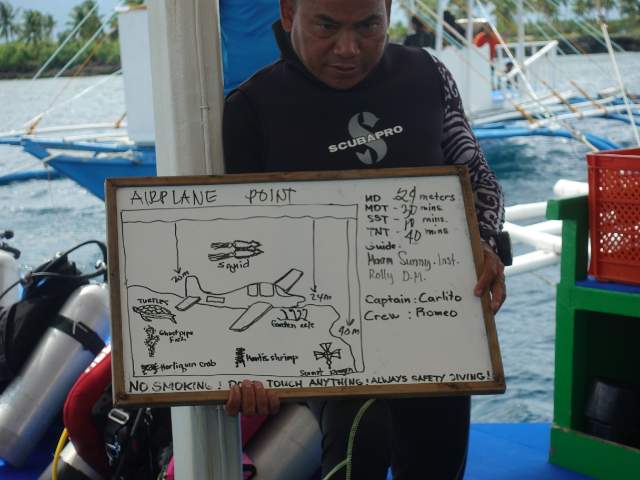 S
SCUBAPRO
AIRPLANE POINT
MD 24 meters
MDT - 30 mins
SST - mins.
TNT - 40 mins
Guide.
Sunny - Inst.
Rolly D.M.
Captain: Carlito
Crew : Romeo
Squid
20m
24m
40m
TURTLES
Garden eels
Ghostpipe
Fish
Harliquin crab
Mantis shrimp
NO SMOKING! TOUCH ANYTHING! ALWAYS SAFETY DIVING!